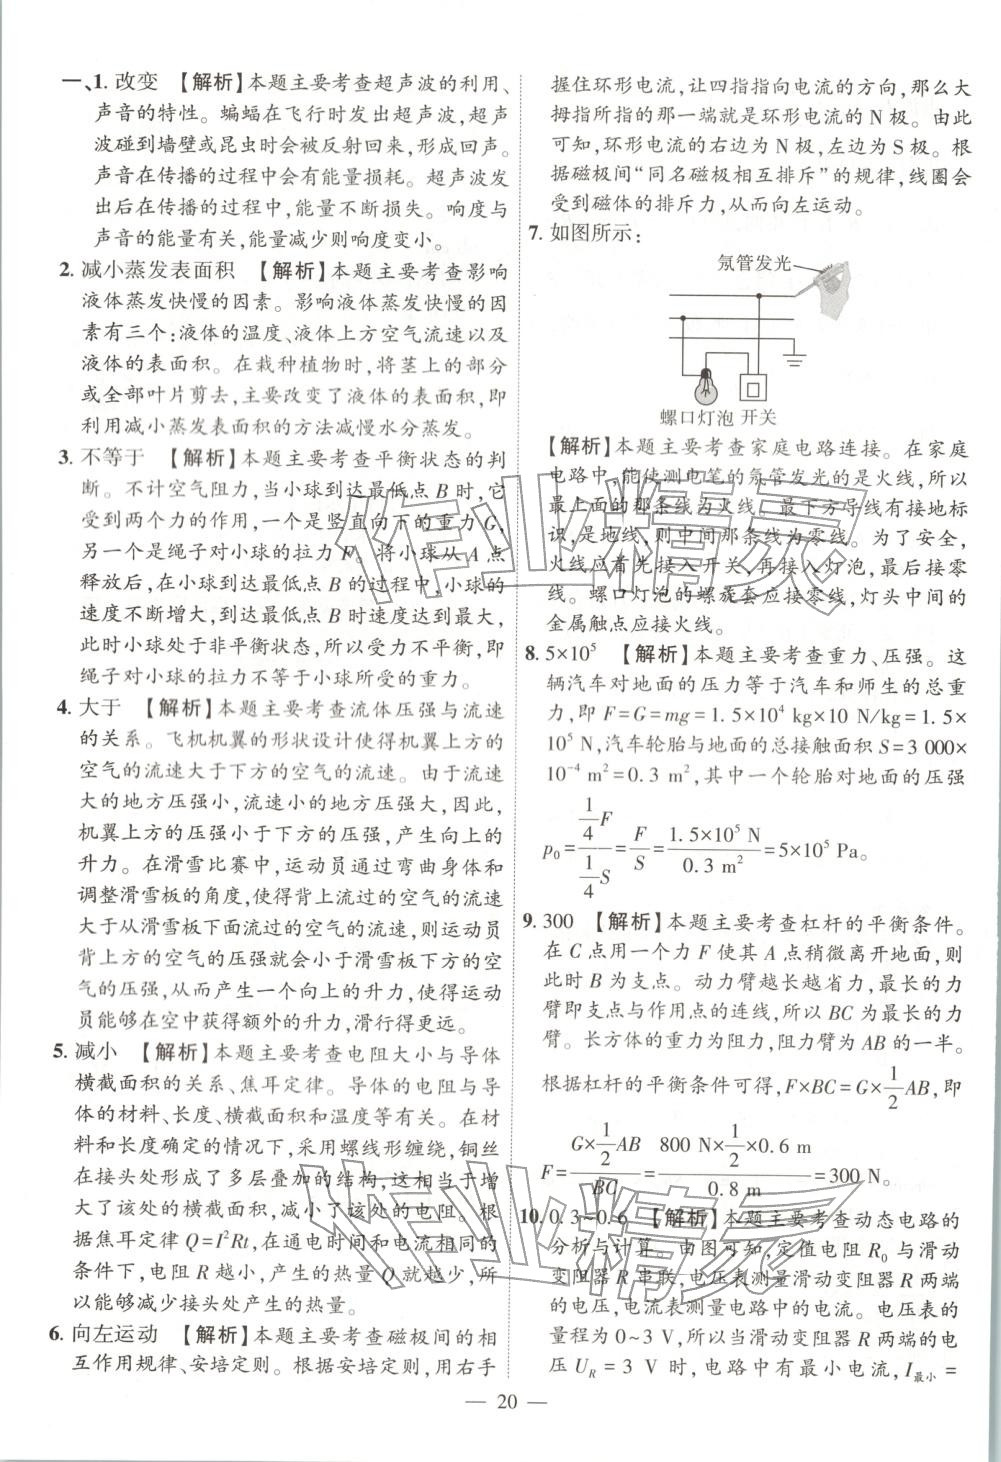 一、1. 改变　【解析】本题主要考查超声波的利用、
声音的特性。蝙蝠在飞行时发出超声波,超声
波碰到墙壁或昆虫时会被反射回来,形成回声。
声音在传播的过程中会有能量损耗。超声波发
出后在传播的过程中,能量不断损失。响度与
声音的能量有关,能量减少则响度变小。
2. 减小蒸发表面积　【解析】本题主要考查影响
液体蒸发快慢的因素。影响液体蒸发快慢的因
素有三个:液体的温度、液体上方空气流速以及
液体的表面积。在栽种植物时,将茎上的部分
或全部叶片剪去,主要改变了液体的表面积,即
利用减小蒸发表面积的方法减慢水分蒸发。
3. 不等于　【解析】本题主要考查平衡状态的判
断。不计空气阻力,当小球到达最低点 B 时,它
受到两个力的作用,一个是竖直向下的重力 G,
另一个是绳子对小球的拉力 F。将小球从 A 点
释放后,在小球到达最低点 B 的过程中,小球的
速度不断增大,到达最低点 B 时速度达到最大,
此时小球处于非平衡状态,所以受力不平衡,即
绳子对小球的拉力不等于小球所受的重力。
4. 大于　【解析】本题主要考查流体压强与流速
的关系。飞机机翼的形状设计使得机翼上方的
空气的流速大于下方的空气的流速。由于流速
大的地方压强小,流速小的地方压强大,因此,
机翼上方的压强小于下方的压强,产生向上的
升力。在滑雪比赛中,运动员通过弯曲身体和
调整滑雪板的角度,使得背上流过的空气的流速
大于从滑雪板下面流过的空气的流速,则运动员
背上方的空气的压强就会小于滑雪板下方的空
气的压强,从而产生一个向上的升力,使得运动
员能够在空中获得额外的升力,滑行得更远。
5. 减小　【解析】本题主要考查电阻大小与导体
横截面积的关系、焦耳定律。导体的电阻与导
体的材料、长度、横截面积和温度等有关。在材
料和长度确定的情况下,采用螺线形缠绕,铜丝
在接头处形成了多层叠加的结构,这相当于增
大了该处的横截面积,减小了该处的电阻。根
据焦耳定律 Q=I²Rt,在通电时间和电流相同的
条件下,电阻 R 越小,产生的热量 Q 就越少,所
以能够减少接头处产生的热量。
6. 向左运动　【解析】本题主要考查磁极间的相
互作用规律、安培定则。根据安培定则,用右手
握住环形电流,让四指指向电流的方向,那么大
拇指所指的那一端就是环形电流的 N 极。由此
可知,环形电流的右边为 N 极,左边为 S 极。根
据磁极间“同名磁极相互排斥”的规律,线圈会
受到磁体的排斥力,从而向左运动。
7. 如图所示:
氖管发光
螺口灯泡 开关
【解析】本题主要考查家庭电路连接。在家庭
电路中,能使测电笔的氖管发光的是火线,所以
最上面的那条线为火线。最下方导线有接地标
识,是地线,则中间那条线为零线。为了安全,
火线应首先接入开关,再接入灯泡,最后接零
线。螺口灯泡的螺旋套应接零线,灯头中间的
金属触点应接火线。
8. 5×10⁵　【解析】本题主要考查重力、压强。这
辆汽车对地面的压力等于汽车和师生的总重
力,即 F=G=mg=1.5×10⁴ kg×10 N/kg=1.5×
10⁵ N,汽车轮胎与地面的总接触面积 S=3 000×
10⁻⁴ m²=0.3 m²,其中一个轮胎对地面的压强
p₀=(1/4 F)/(1/4 S)=F/S=(1.5×10⁵ N)/(0.3 m²)=5×10⁵ Pa。
9. 300　【解析】本题主要考查杠杆的平衡条件。
在 C 点用一个力 F 使其 A 点稍微离开地面,则
此时 B 为支点。动力臂越长越省力,最长的力
臂即支点与作用点的连线,所以 BC 为最长的力
臂。长方体的重力为阻力,阻力臂为 AB 的一半。
根据杠杆的平衡条件可得,F×BC=G×1/2 AB,即
F=(G×1/2 AB)/BC=(800 N×1/2×0.6 m)/(0.8 m)=300 N。
10. 0.3~0.6　【解析】本题主要考查动态电路的
分析与计算。由图可知,定值电阻 R₀ 与滑动
变阻器 R 串联,电压表测量滑动变阻器 R 两端
的电压,电流表测量电路中的电流。电压表的
量程为 0~3 V,所以当滑动变阻器 R 两端的电
压 U_R=3 V 时,电路中有最小电流,I最小=
— 20 —
作业精灵
作业精灵